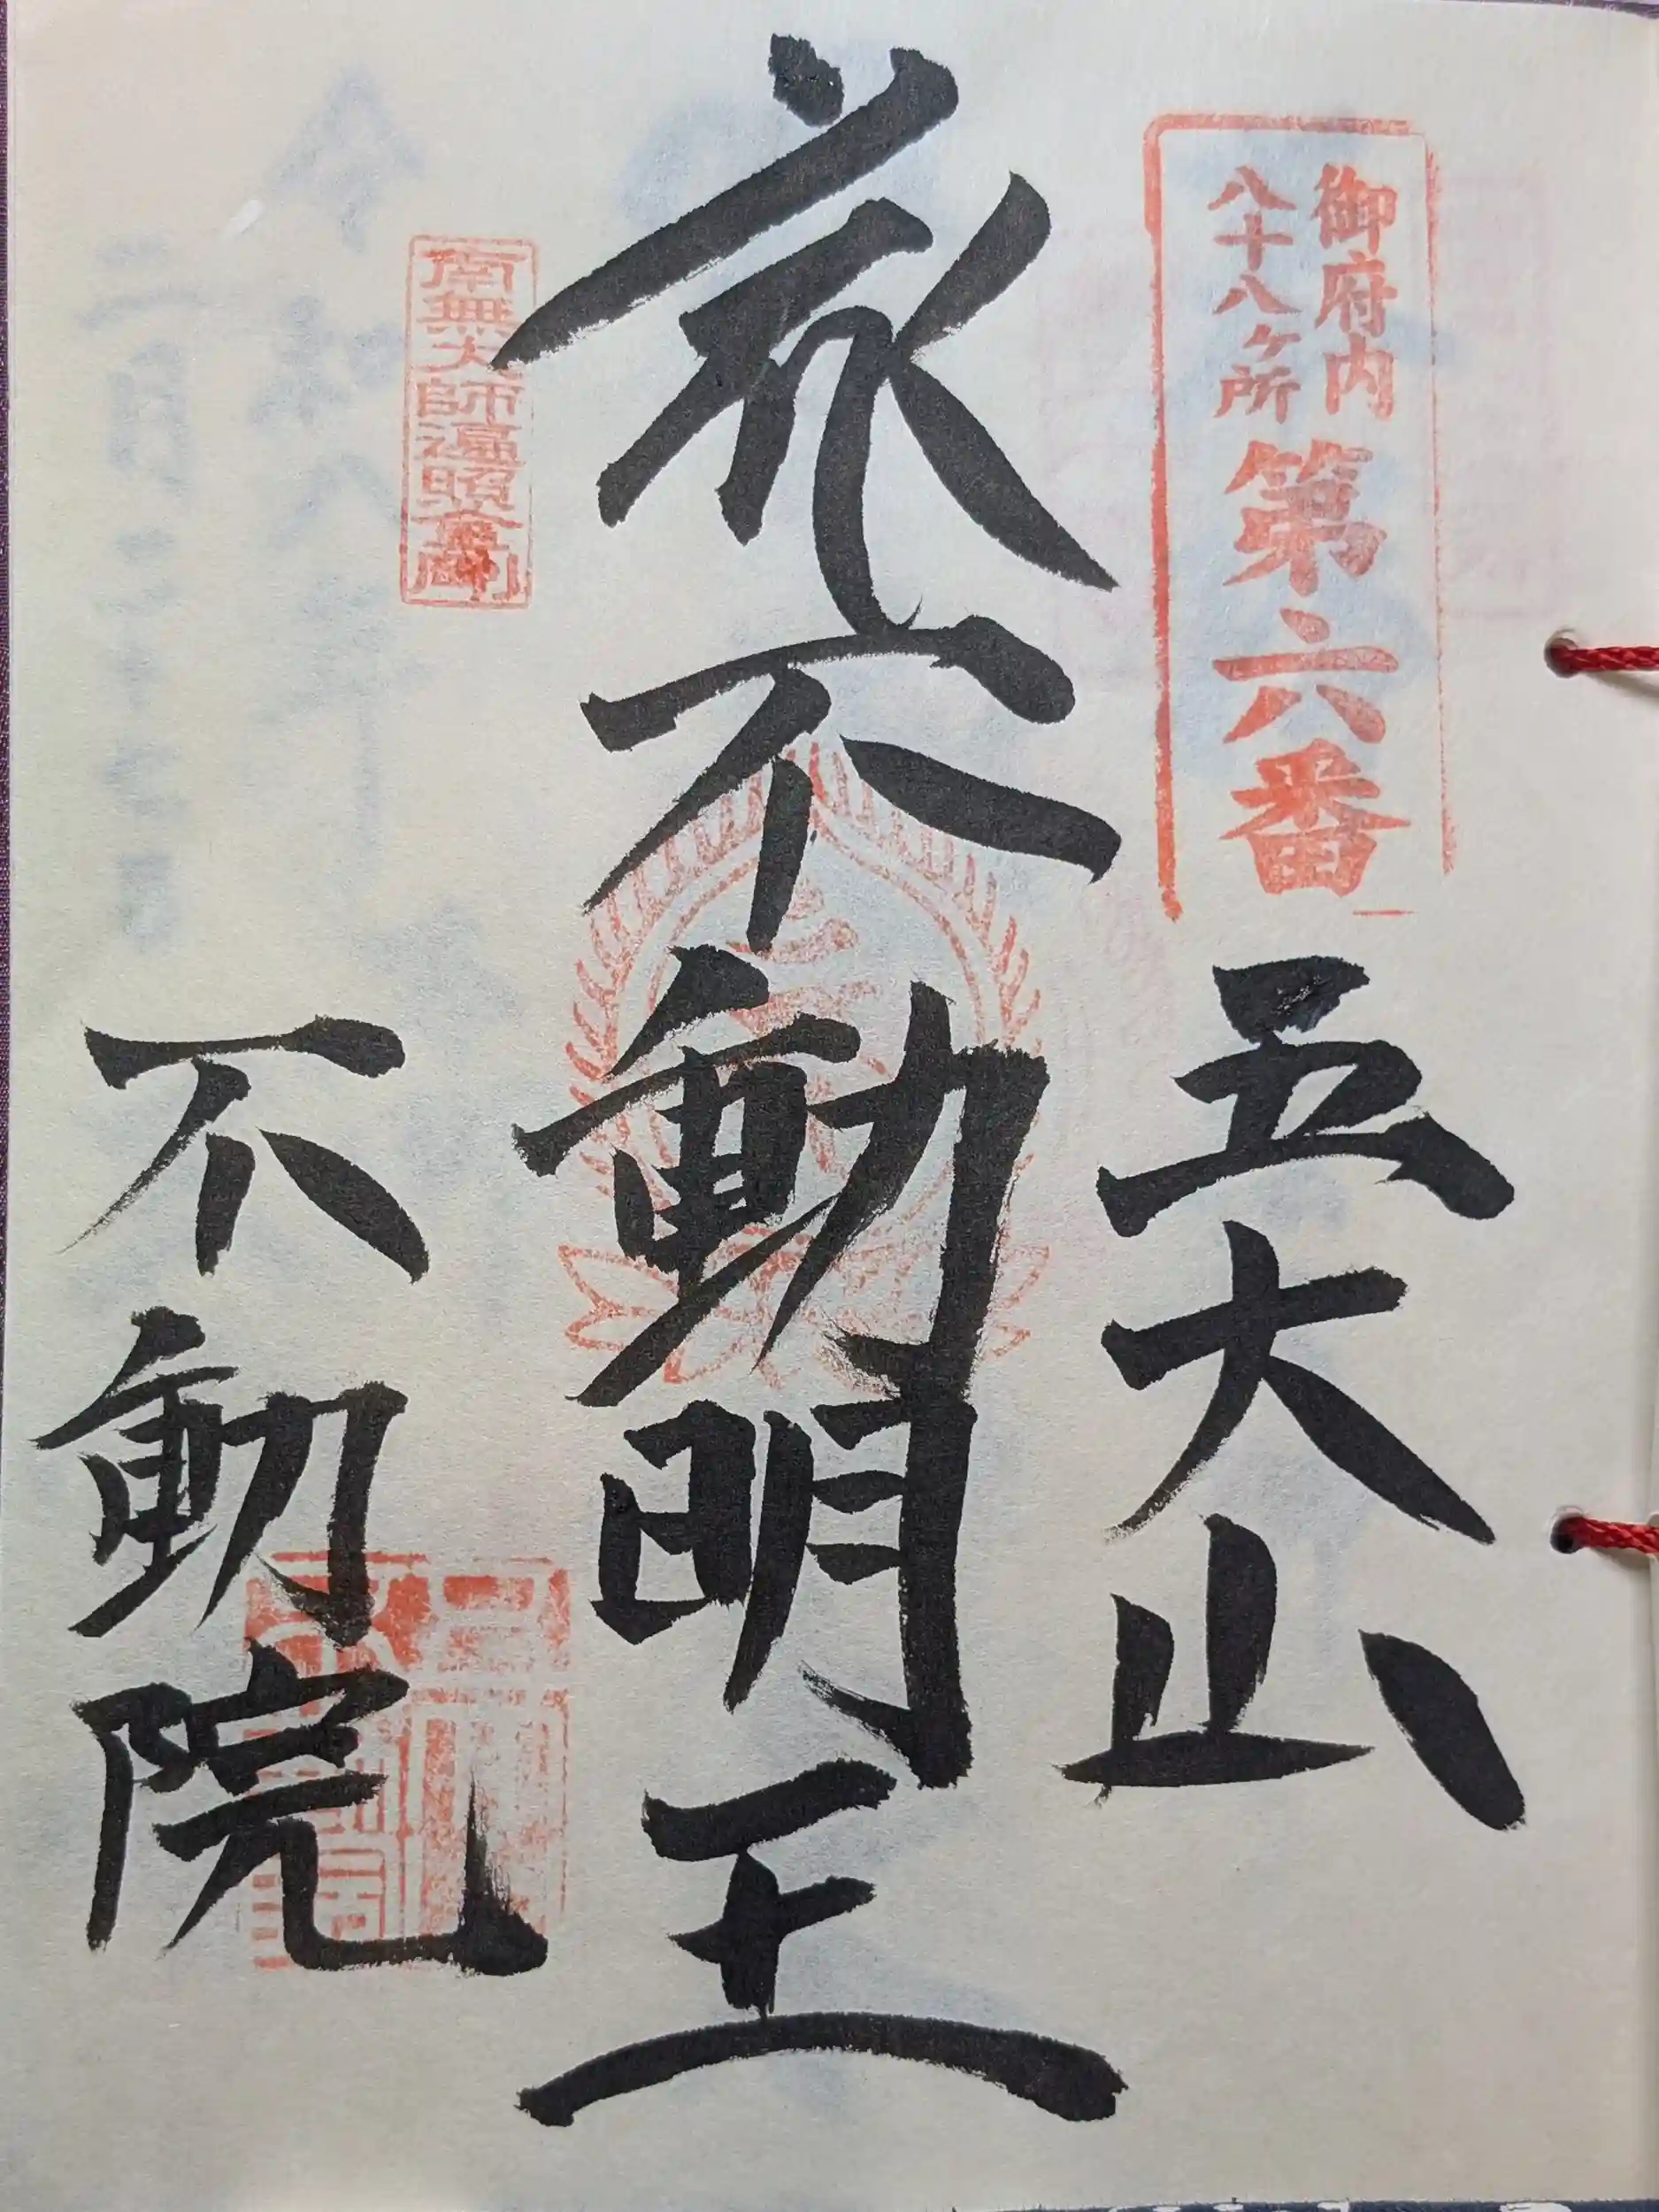 御府内
八十八ヶ所
第六番
五大山
不動明王
南無大師遍照金剛
不動院